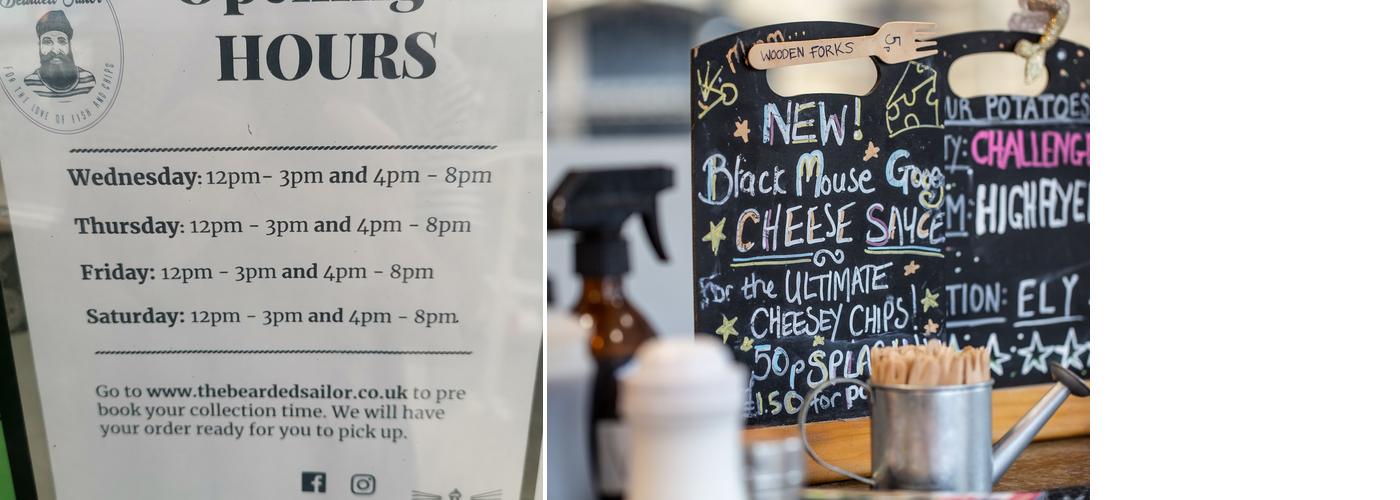 Bearded Sailor
FOR THE LOVE OF FISH AND CHIPS
Opening
HOURS
Wednesday: 12pm- 3pm and 4pm - 8pm
Thursday: 12pm - 3pm and 4pm - 8pm
Friday: 12pm - 3pm and 4pm - 8pm
Saturday: 12pm - 3pm and 4pm - 8pm
Go to www.thebeardedsailor.co.uk to pre
book your collection time. We will have
your order ready for you to pick up.
WOODEN FORKS 5p
NEW!
Black Mouse
CHEESE SAUCE
For the ULTIMATE
CHEESEY CHIPS!
50p
£1.50 for
POTATOES
CHALLENG
HIGHFLYE
ELY